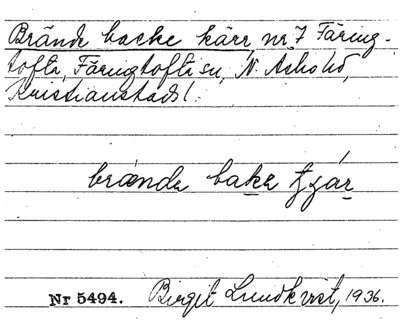 Brände backe kärr, nr 7 Färing-
tofta, Färingtofta sn, N. Åsbo hd,
Kristianstads l.
brä́nde bake tjä́r
Nr 5494. Birgit Lundkvist, 1936.